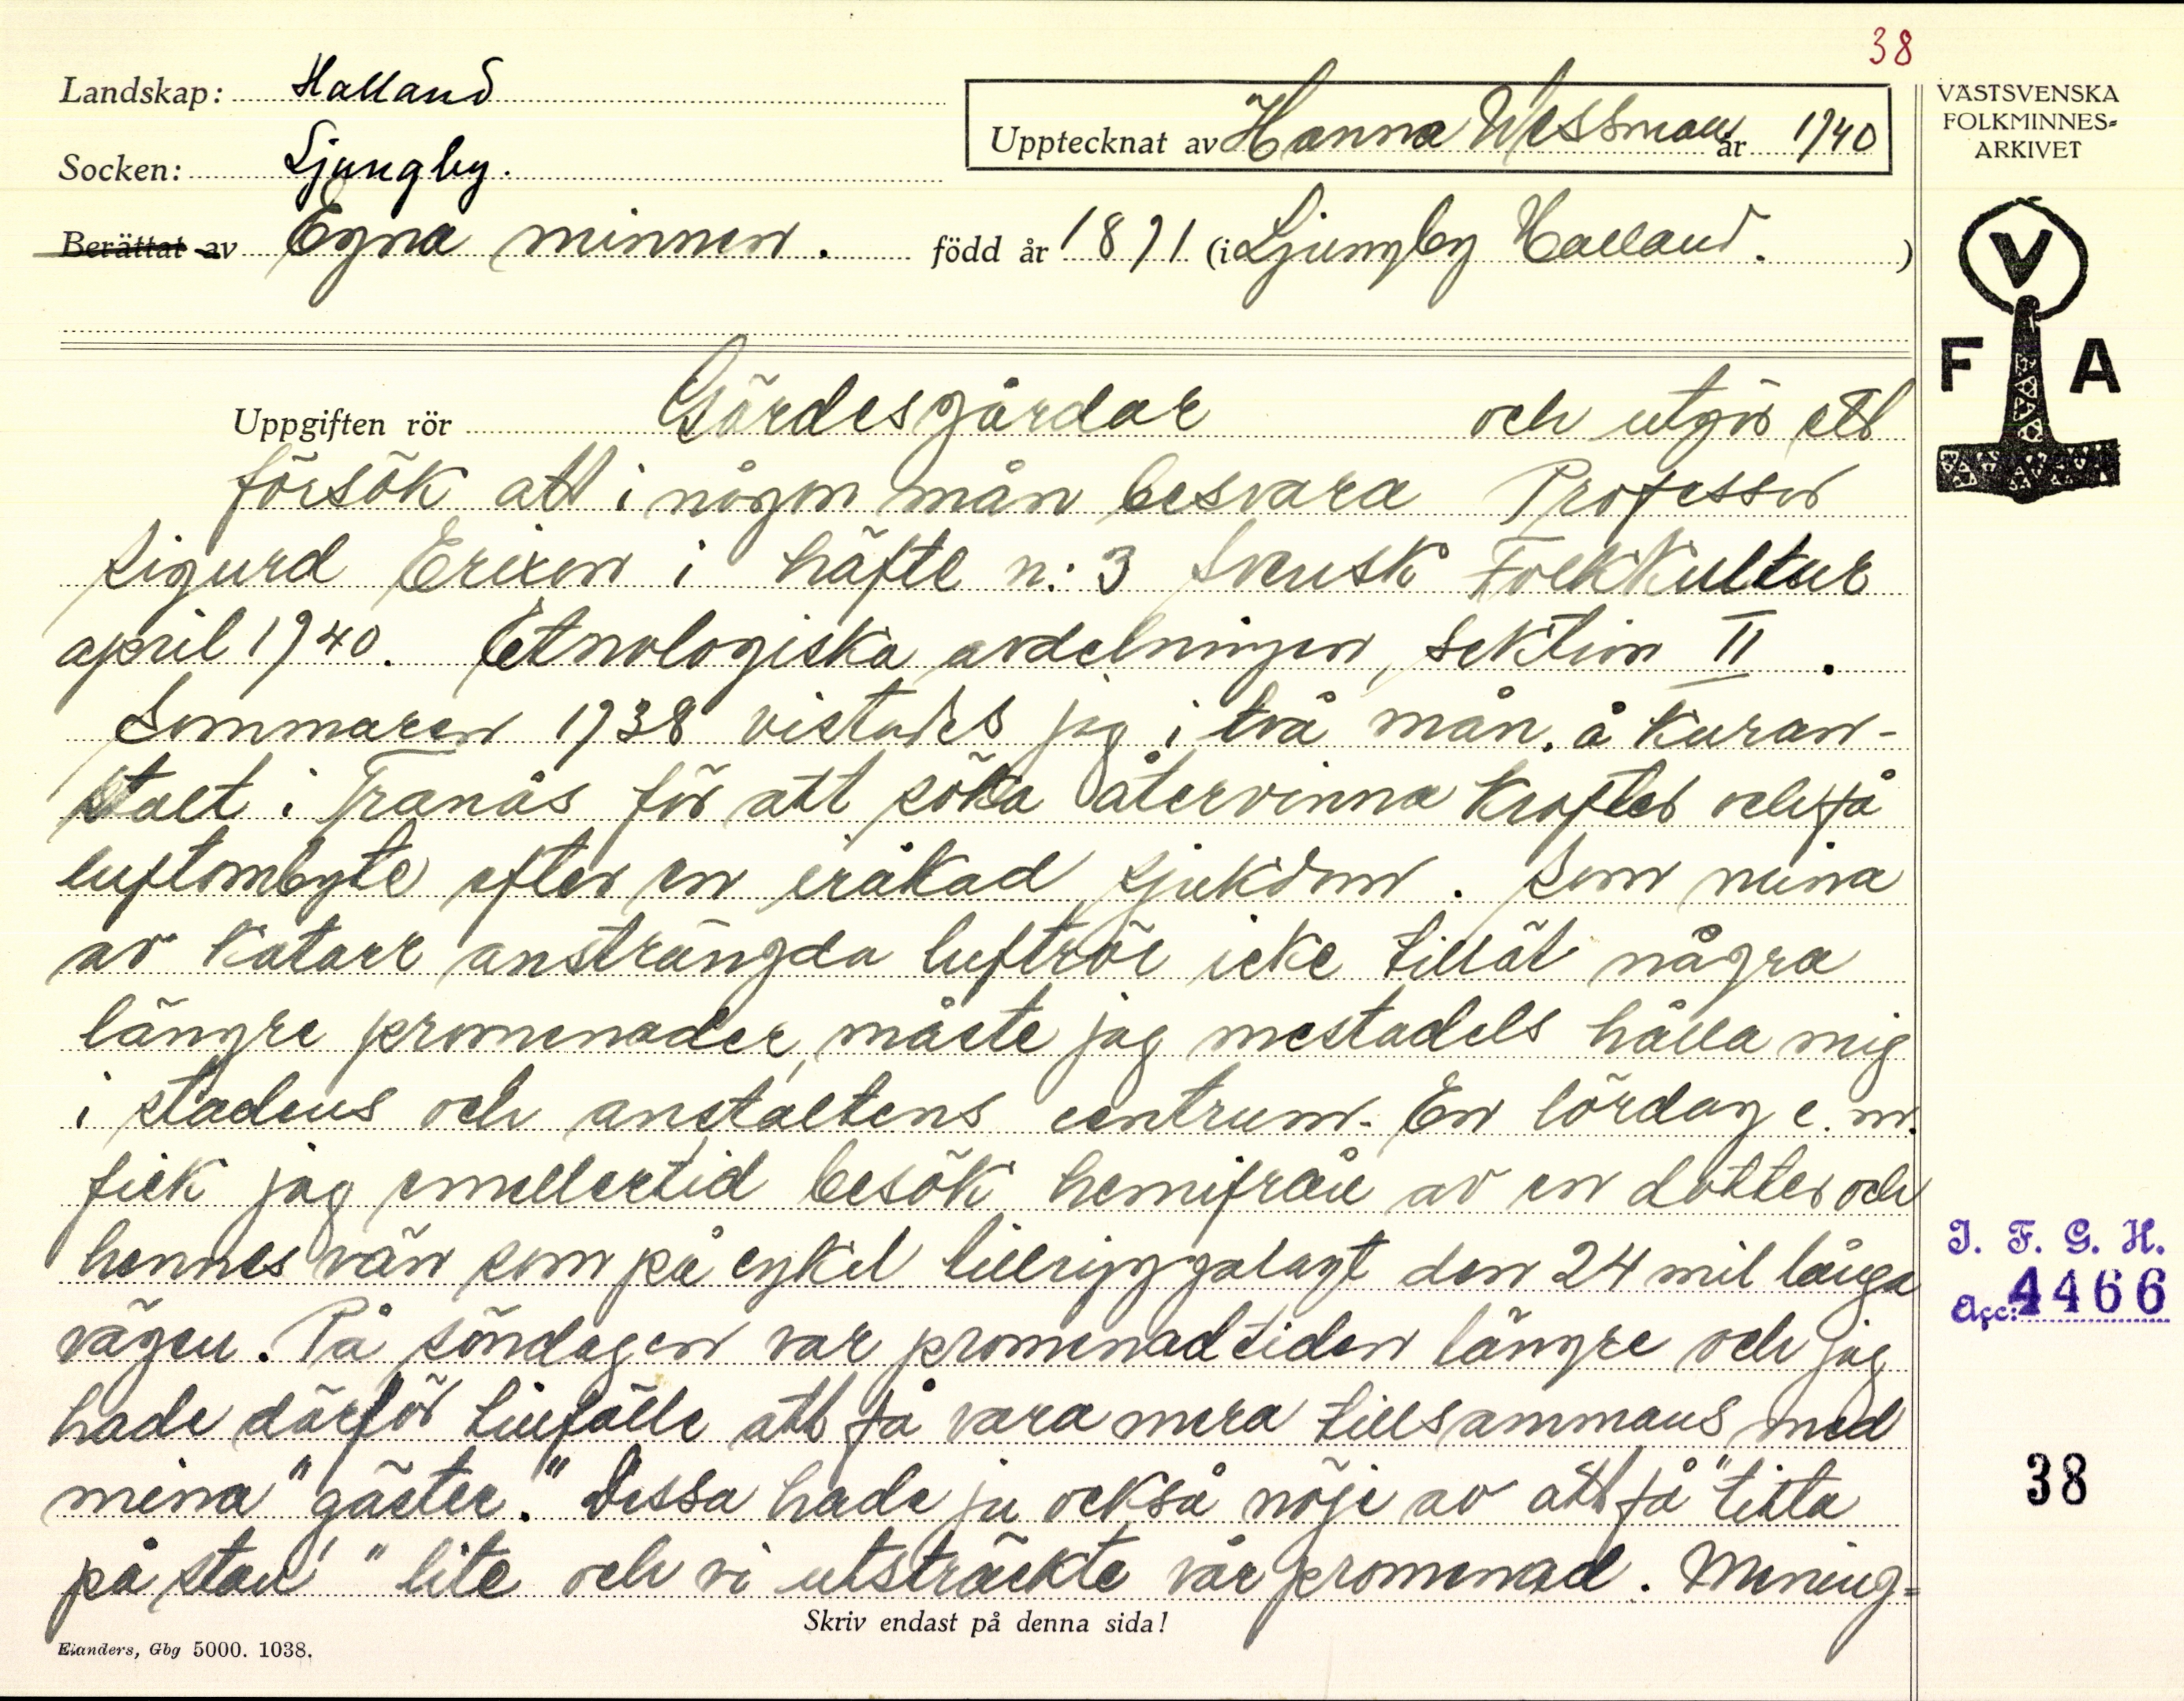 38
Landskap: Halland
Socken: Ljungby.
Upptecknat av Hanna Wessman år 1940
Berättat av Egna minnen. född år 1891 (i Ljungby Halland. )
VÄSTSVENSKA
FOLKMINNES-
ARKIVET
V
F A
Uppgiften rör Gärdesgårdar och utgör ett
försök att i någon mån besvara Professor
Sigurd Erixon i häfte n: 3 Svensk Folkkultur
april 1940. Etnologiska avdelningen, sektion II .
Sommaren 1938 vistades jag i två mån. å Kuran-
stalt i Tranås för att söka återvinna krafter och få
luftombyte efter en iråkad sjukdom. Som mina
av katarr ansträngda luftrör icke tillät några
längre promenader, måste jag mestadels hålla mig
i stadens och anstaltens centrum. En lördag e.m.
fick jag emellertid besök hemifrån av en dotter och
hennes vän som på cykel tillryggalagt den 24 mil långa
vägen. På söndagen var promenadtiden längre och jag
hade därför tillfälle att få vara mera tillsammans med
mina "gäster." Dessa hade ju också nöje av att få "titta
på stan" lite och vi utsträckte vår promenad. Mening=
I. F. G. H.
Acc: 4466
38
Skriv endast på denna sida!
Elanders, Gbg 5000. 1038.